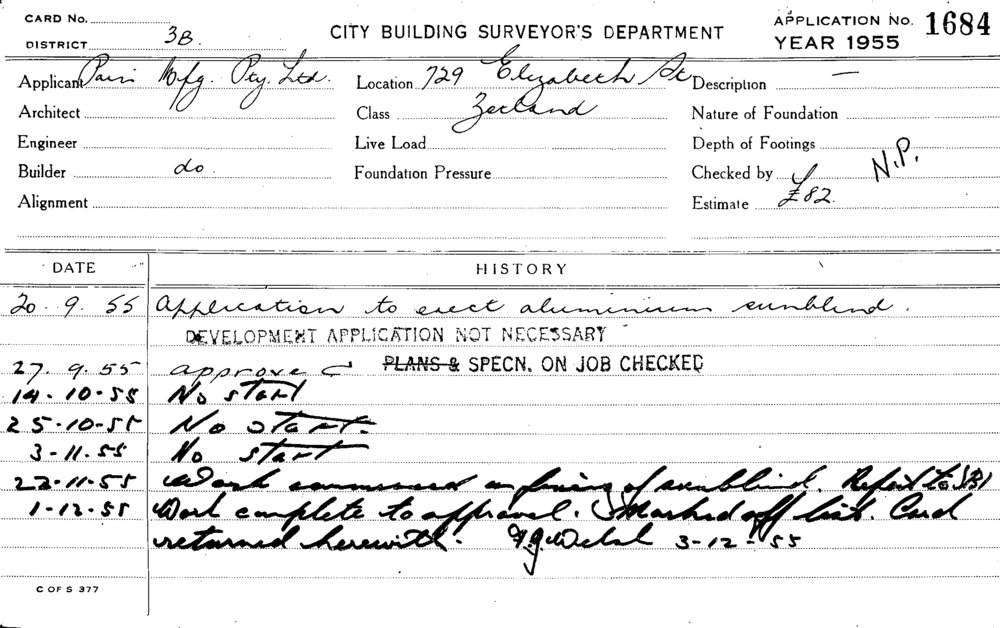 CARD No.
DISTRICT 3B.
CITY BUILDING SURVEYOR'S DEPARTMENT
APPLICATION No. 1684
YEAR 1955
Applicant Mfg. Pty. Ltd. Location 729 Elizabeth St Description —
Architect Class Zetland Nature of Foundation
Engineer Live Load Depth of Footings
Builder do. Foundation Pressure Checked by N.P.
Alignment Estimate £82.
DATE HISTORY
20.9.55 Application to erect aluminium sunblind.
DEVELOPMENT APPLICATION NOT NECESSARY
27.9.55 approved PLANS & SPECN. ON JOB CHECKED
14-10-55 No start
25-10-55 No start.
3-11-55 No start
22-11-55 Work commenced on fixing of sunblind. to
1-12-55 Work complete to approval. Marked off list. Card
returned herewith. 3-12-55
C OF S 377